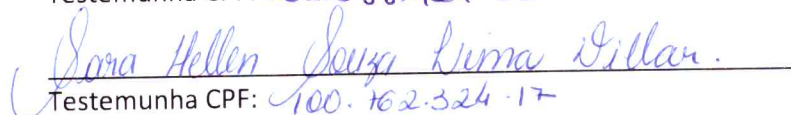 Testemunha
Sara Hellen Souza Lima Villar.
Testemunha CPF: 100.762.324-17